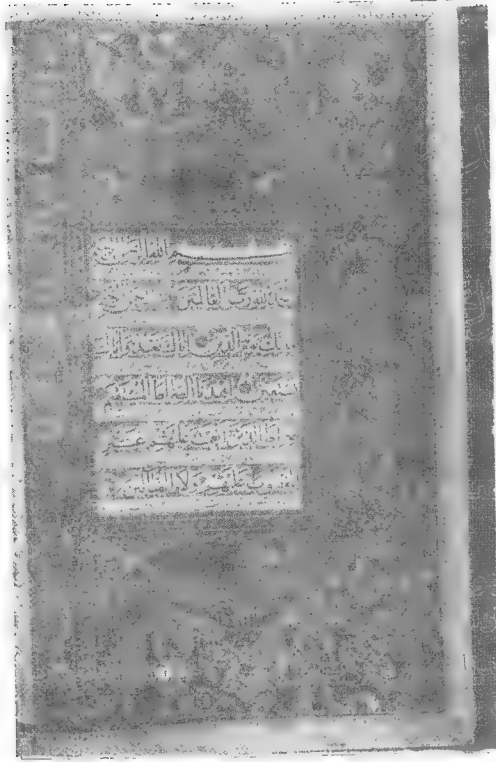 بسم الله الرحمن الرحيم
الحمد لله رب العالمين الرحمن الرحيم
مالك يوم الدين اياك نعبد و اياك
نستعين اهدنا الصراط المستقيم
صراط الذين انعمت عليهم غير
المغضوب عليهم ولا الضالين